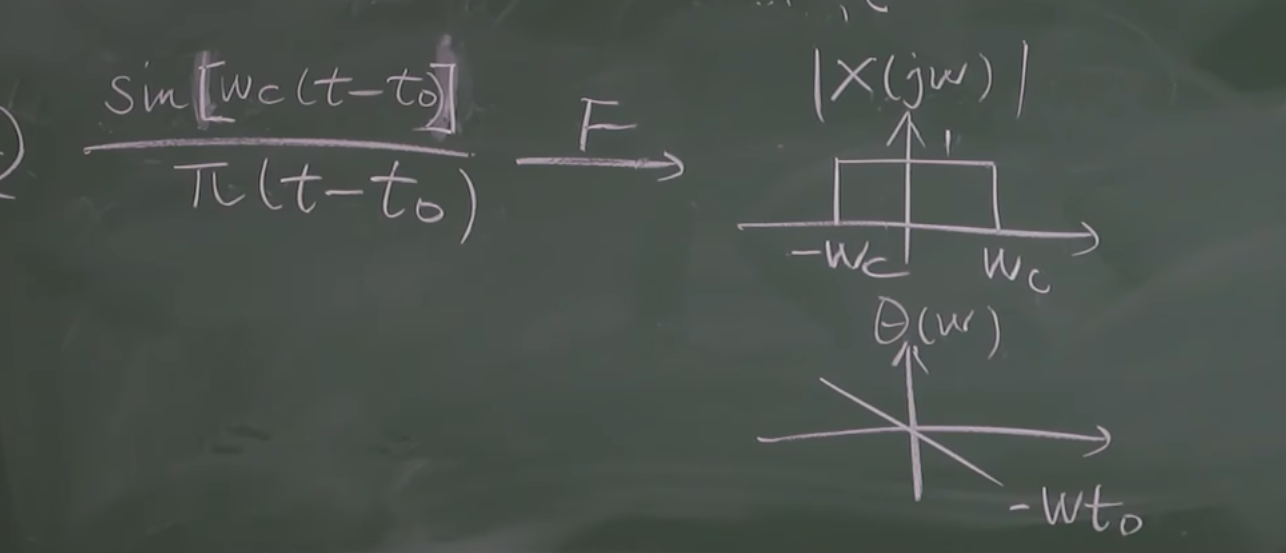 sin[wc(t-t0)]
π(t-t0)
F
|X(jw)|
1
-wc
wc
θ(w)
-wt0